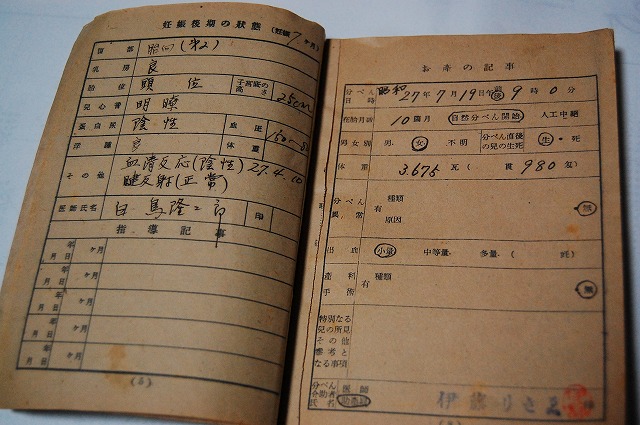 妊娠後期の状態 (妊娠7ヶ月)
胸部
乳房 良
胎位 頭位 子宮底の高さ 25cm
児心音 明瞭
蛋白尿 陰性 血圧
浮腫 体重
その他 血清反応(陰性) 27.4.10
腱反射(正常)
医師氏名 白馬隆二郎 印
指導記事
年 月 日 ヶ月
年 月 日 ヶ月
年 月 日 ヶ月
年 月 日 ヶ月
年 月 日 ヶ月
お産の記事
分べん日時 昭和27年7月19日午前後9時0分
在胎月数 10箇月 自然分べん開始 人工中絶
男女別 男. 女 不明 分べん直後の児の生死 生・死
体重 3.675瓦 (貫980匁)
分べん異常 有 種類 原因 ・無
出血 小量 中等量. 多量. ( 瓩)
産科手術 有 種類 ・無
特別なる児の所見その他参考となる事項
分べん介助者氏名 医師 助産婦 伊藤りさ